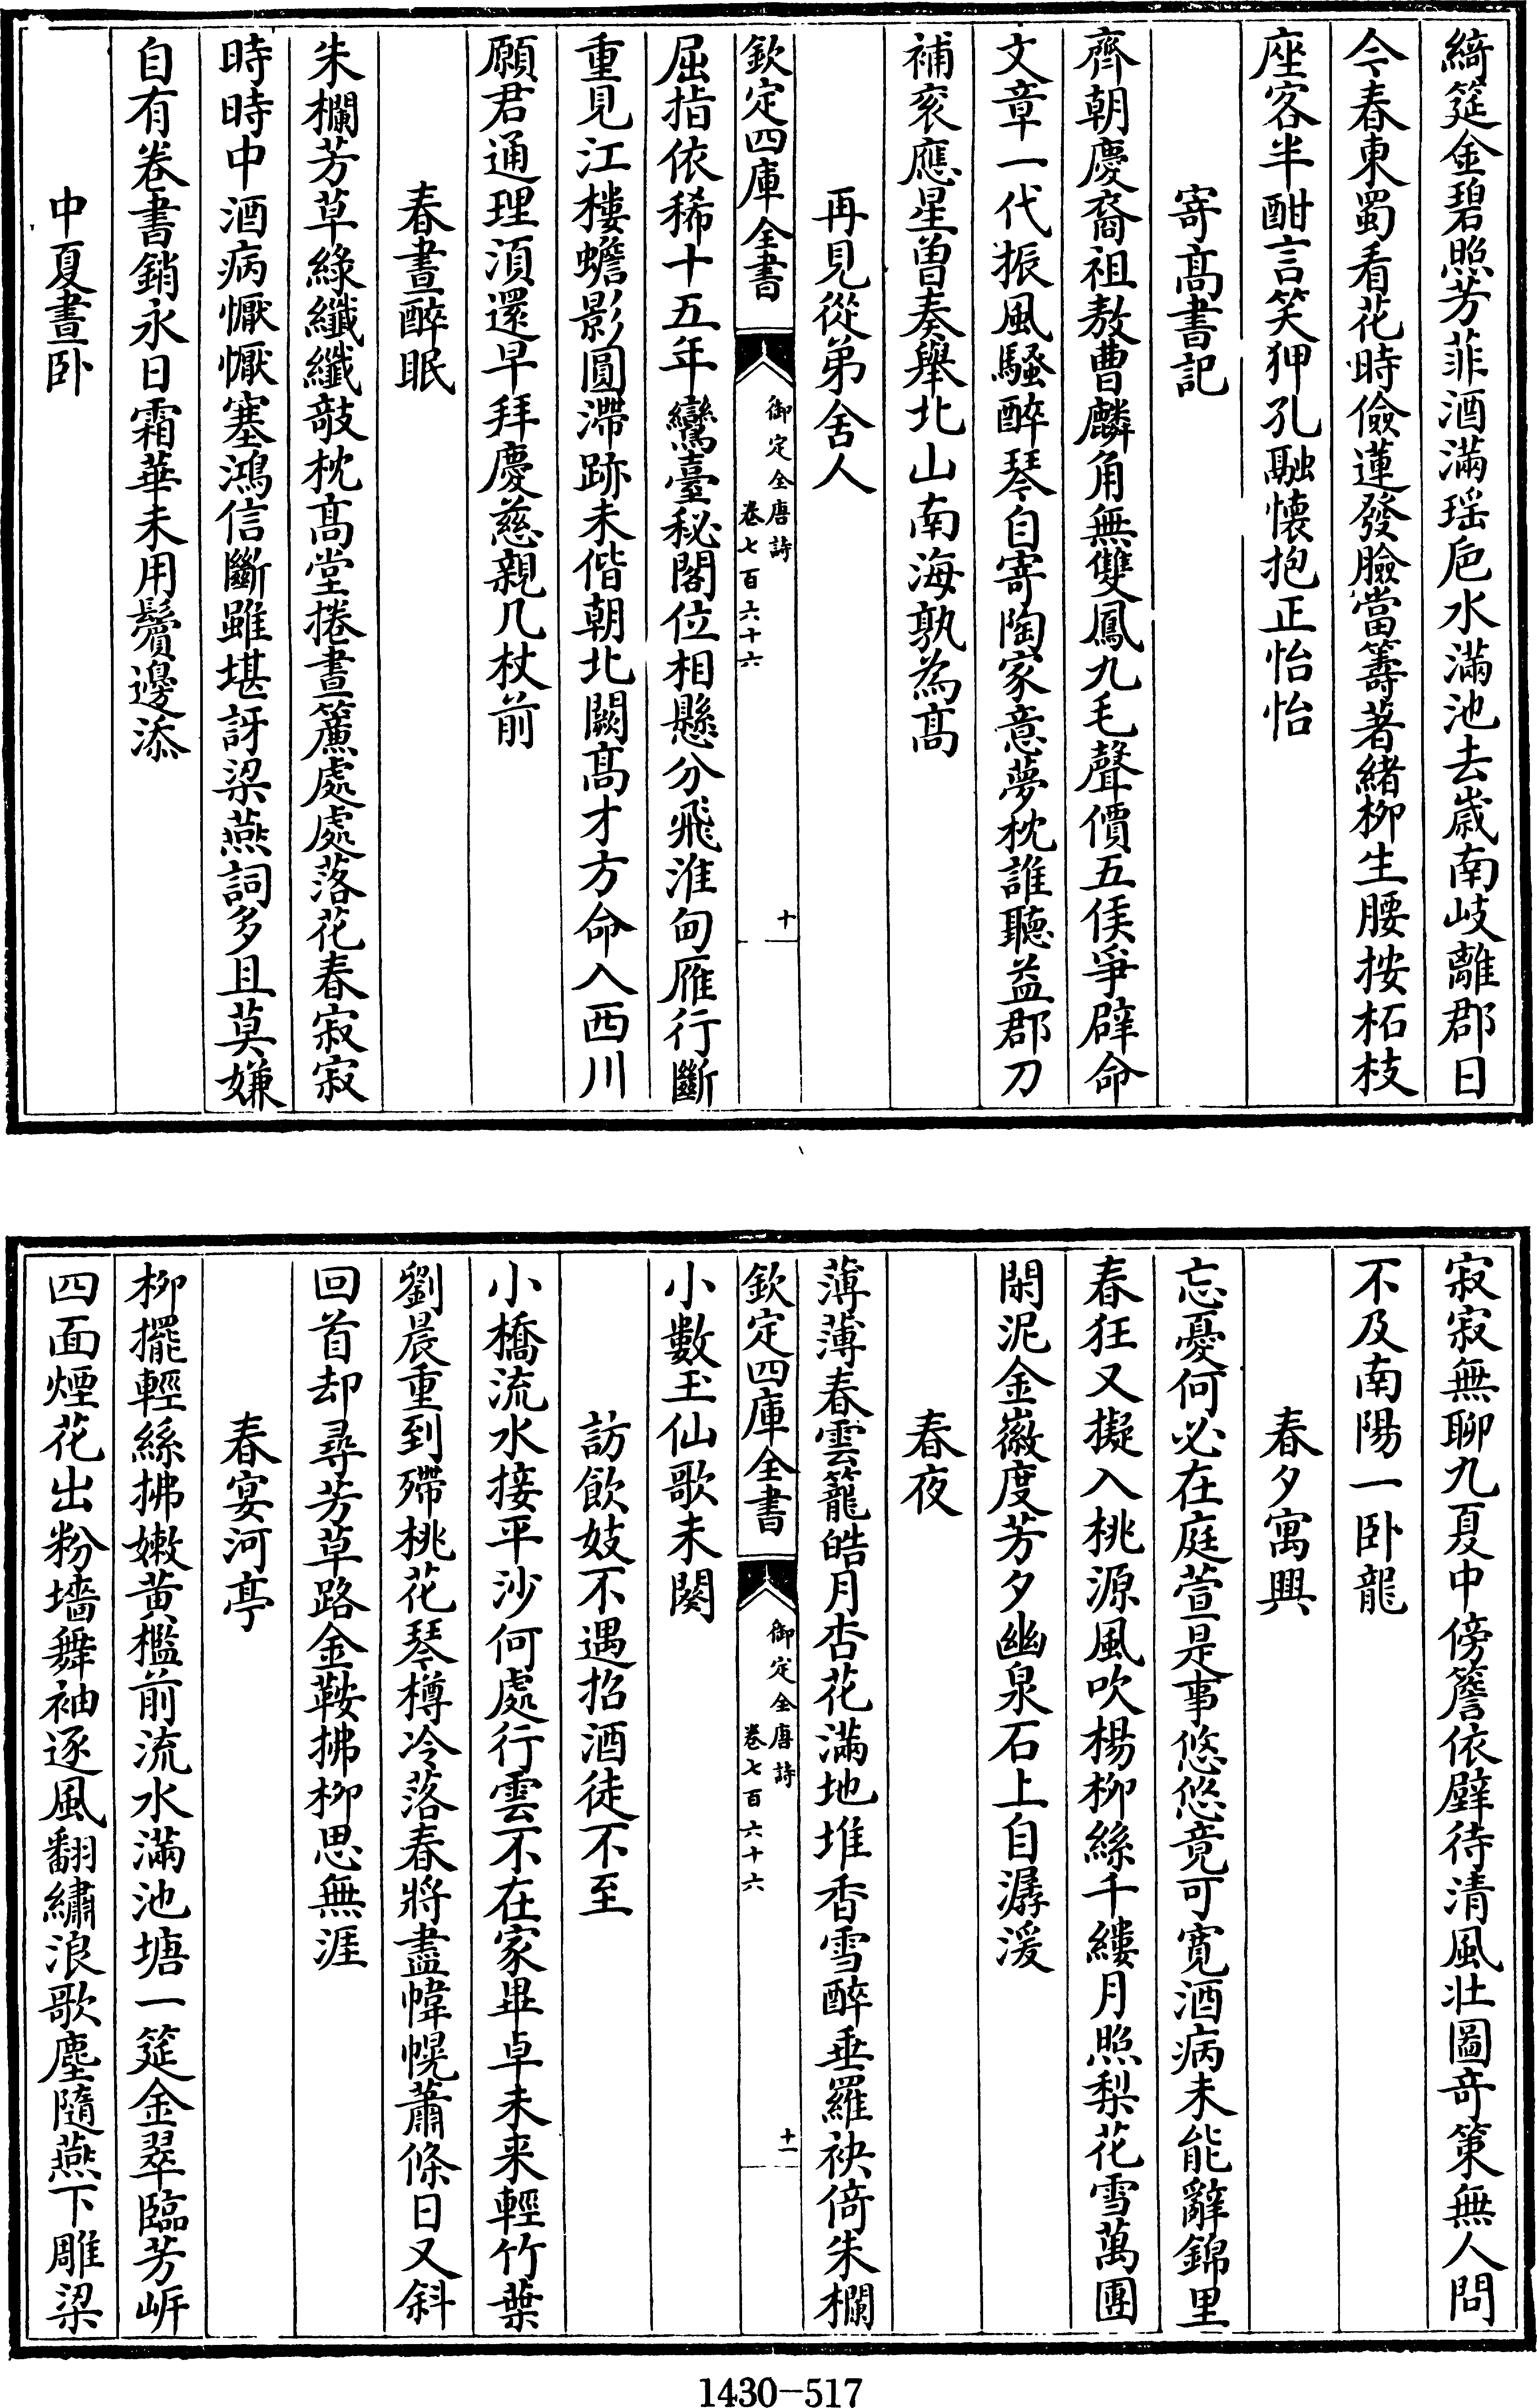 綺筵金碧照芳菲酒滿瑤巵水滿池去歲南岐離郡日
今春東蜀看花時儉蓮發臉當籌著緒柳生腰按柘枝
座客半酣言笑狎孔融懷抱正怡怡
寄髙書記
齊朝慶裔祖敖曹麟角無雙鳳九毛聲價五侯爭辟命
文章一代振風騷醉琴自寄陶家意夢枕誰聽益郡刀
補衮應星曽奏舉北山南海孰為髙
再見從弟舍人
欽定四庫全書
御定全唐詩
卷七百六十六
十
屈指依稀十五年鸞臺秘閣位相懸分飛淮甸雁行斷
重見江樓蟾影圓滯跡未偕朝北闕髙才方命入西川
願君通理須還早拜慶慈親几杖前
春晝醉眠
朱欄芳草綠纖纖敧枕髙堂捲晝簾處處落花春寂寂
時時中酒病懨懨塞鴻信斷雖堪訝梁燕詞多且莫嫌
自有卷書銷永日霜華未用鬢邊添
中夏晝卧
寂寂無聊九夏中傍簷依壁待清風壯圖奇策無人問
不及南陽一卧龍
春夕寓興
忘憂何必在庭萱是事悠悠竟可寛酒病未能辭錦里
春狂又擬入桃源風吹楊柳絲千縷月照梨花雪萬團
閑泥金徽度芳夕幽泉石上自潺湲
春夜
薄薄春雲籠皓月杏花滿地堆香雪醉垂羅袂倚朱欄
欽定四庫全書
御定全唐詩
卷七百六十六
十一
小數玉仙歌未闋
訪飲妓不遇招酒徒不至
小橋流水接平沙何處行雲不在家畢卓未来輕竹葉
劉晨重到殢桃花琴樽冷落春將盡幃幌蕭條日又斜
回首却尋芳草路金鞍拂柳思無涯
春宴河亭
柳擺輕絲拂嫩黄檻前流水滿池塘一筵金翠臨芳岍
四面煙花出粉墻舞袖逐風翻繡浪歌塵隨燕下雕梁
1430-517